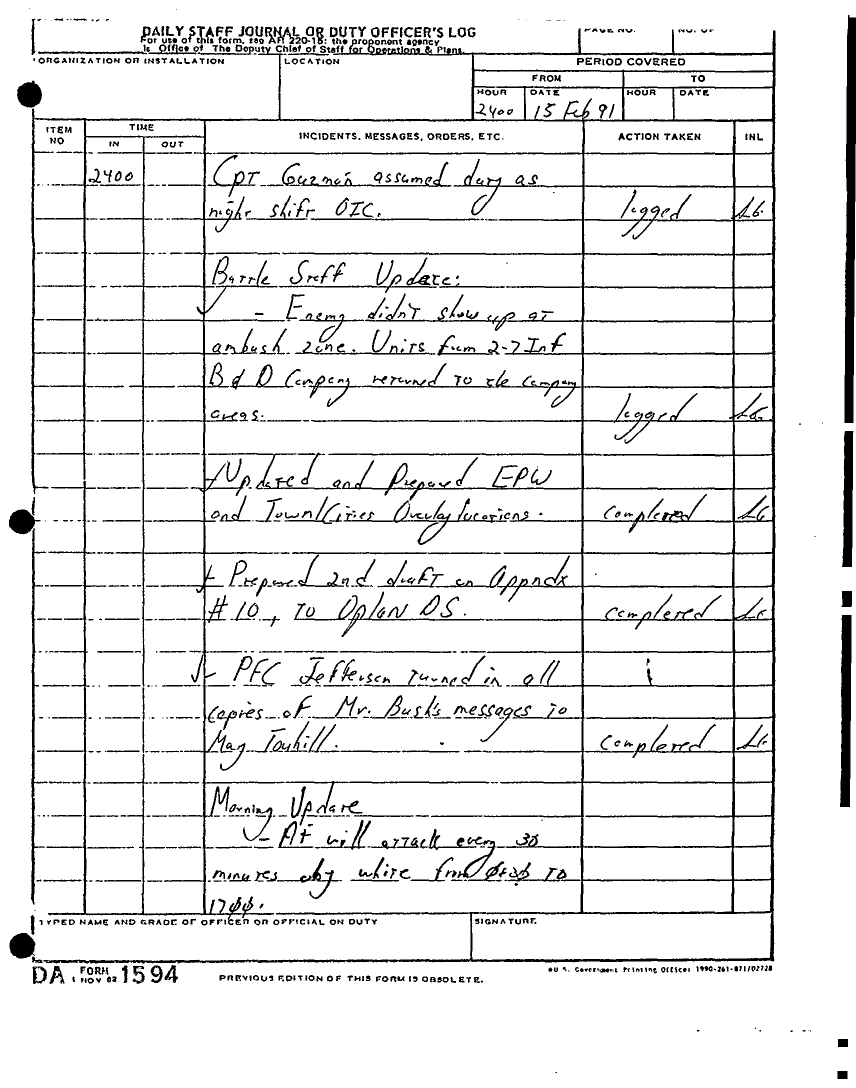 DAILY STAFF JOURNAL OR DUTY OFFICER'S LOG
For use of this form, see AR 220-15; the proponent agency
is Office of The Deputy Chief of Staff for Operations & Plans.
PAGE NO.
NO. OF
ORGANIZATION OR INSTALLATION
LOCATION
PERIOD COVERED
FROM
TO
HOUR
DATE
HOUR
DATE
2400
15 Feb 91
ITEM NO
TIME
IN
OUT
INCIDENTS, MESSAGES, ORDERS, ETC.
ACTION TAKEN
INL
2400
CPT Guzman assumed duty as
night shift OIC.
logged
LG
Battle Staff Update:
- Enemy didn't show up at
ambush zone. Units from 2-7 Inf
B & D Company returned to the company
areas.
logged
LG
- Updated and Prepared EPW
and Town/Cities Overlay locations.
completed
LG
- Prepared 2nd draft on Appndx
#10, to Oplan DS.
completed
LG
- PFC Jefferson turned in all
copies of Mr. Bush's messages to
Maj Touhill.
completed
LG
Morning Update
- AF will attack every 30
minutes
white from
to
1700.
TYPED NAME AND GRADE OF OFFICER OR OFFICIAL ON DUTY
SIGNATURE
DA FORM 1 NOV 62 1594
PREVIOUS EDITION OF THIS FORM IS OBSOLETE.
U.S. Government Printing Office: 1990-261-871/02728